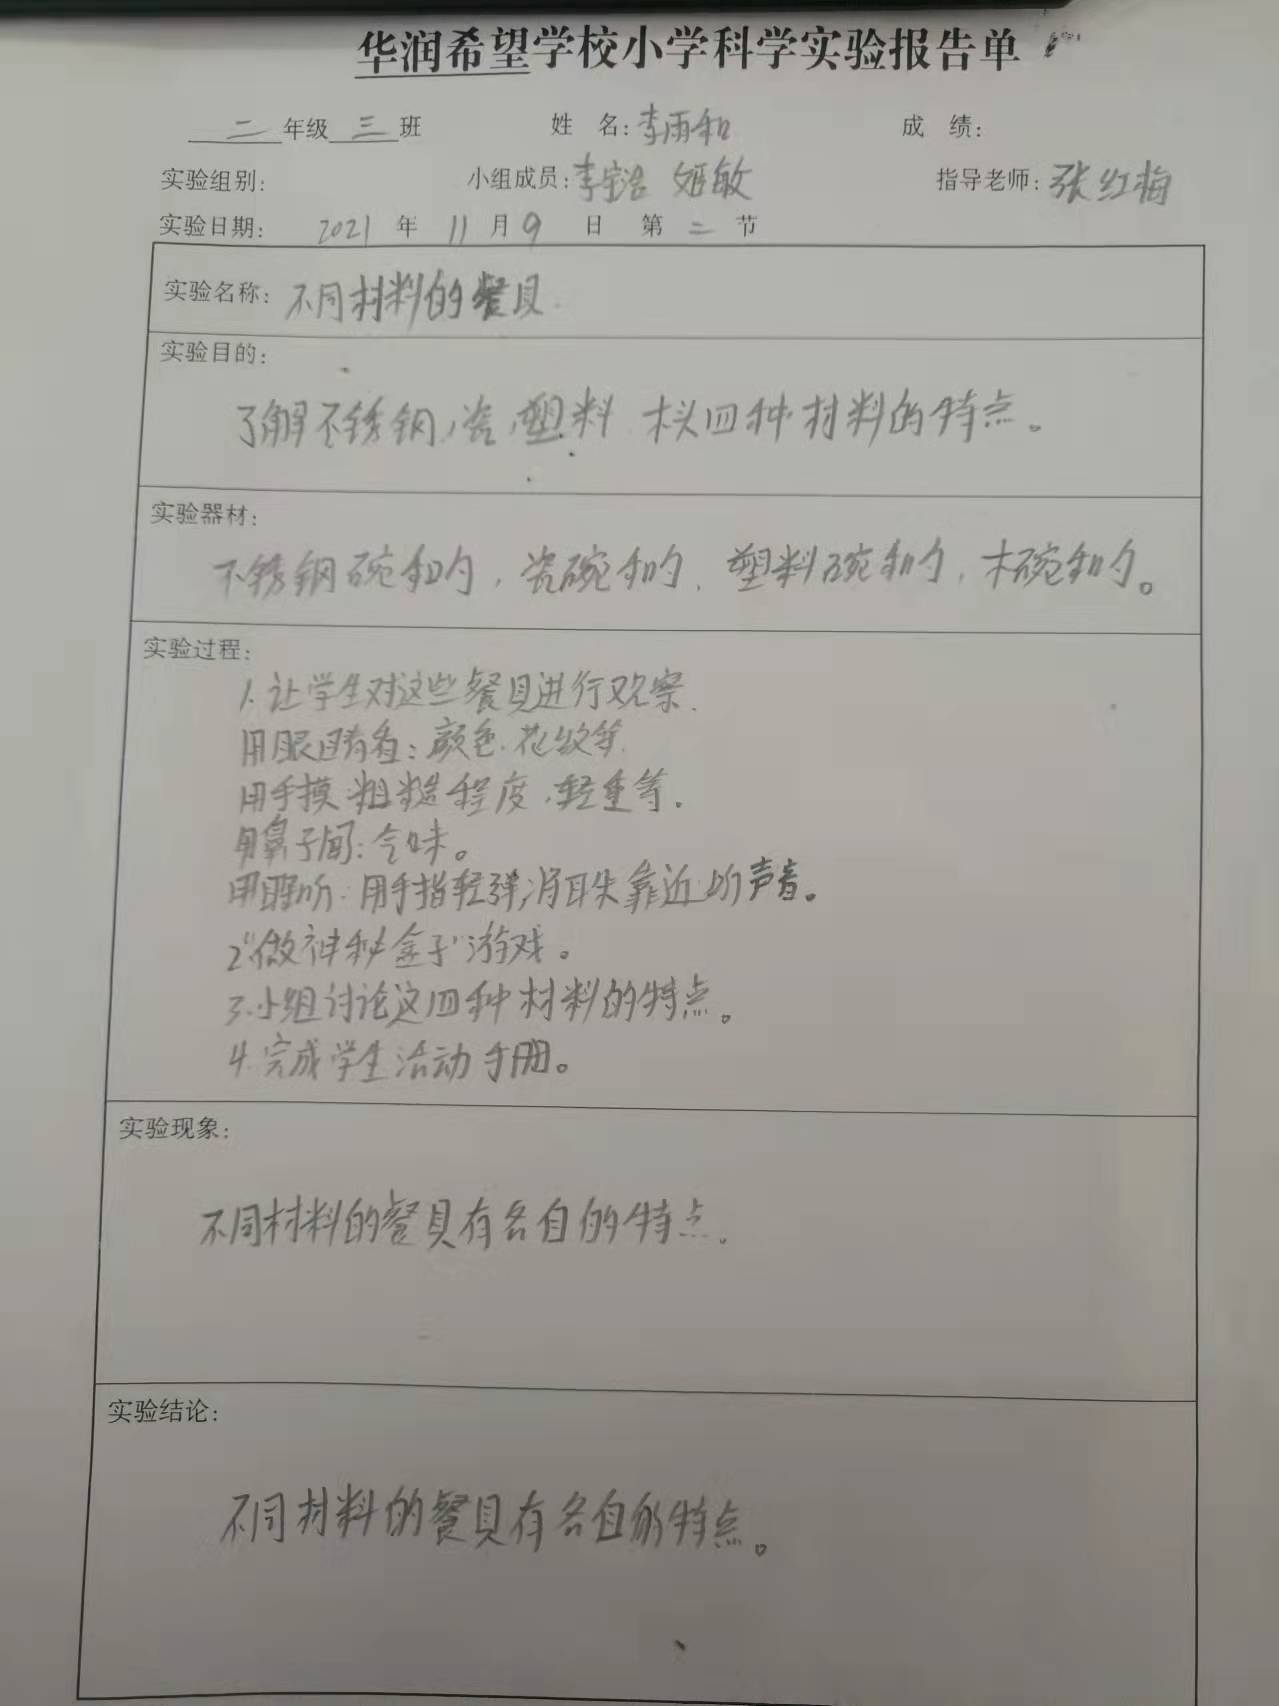 华润希望学校小学科学实验报告单
二年级三班 姓 名:李雨和 成 绩:
实验组别: 小组成员:李宇浩 姬敏 指导老师:张红梅
实验日期: 2021 年 11 月 9 日 第 二 节
实验名称: 不同材料的餐具
实验目的:
了解不锈钢,瓷,塑料 木头四种材料的特点。
实验器材:
不锈钢碗和勺,瓷碗和勺、塑料碗和勺,木碗和勺。
实验过程:
1.让学生对这些餐具进行观察.
用眼睛看:颜色.花纹等.
用手摸:粗糙程度,轻重等.
用鼻子闻:气味。
用耳听:用手指轻弹,将耳朵靠近听声音。
2"做神秘盒子"游戏。
3.小组讨论这四种材料的特点。
4.完成学生活动手册。
实验现象:
不同材料的餐具有各自的特点.
实验结论:
不同材料的餐具有各自的特点。